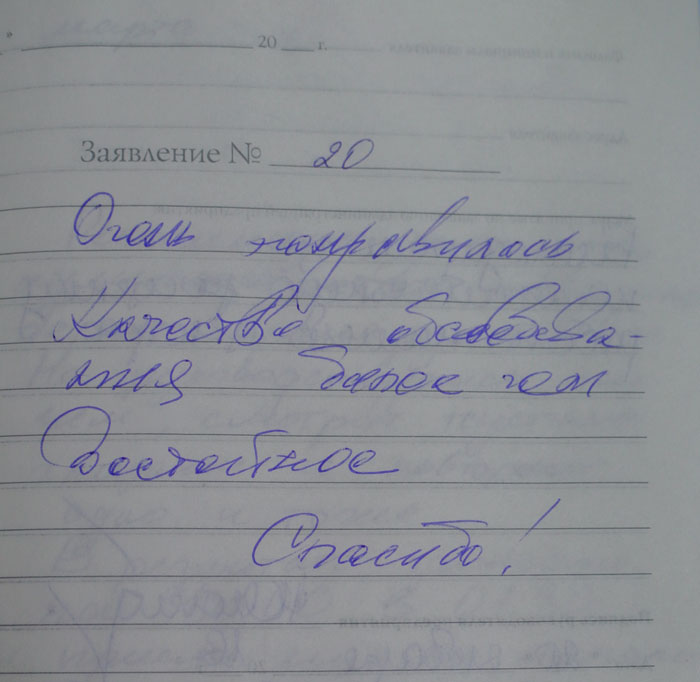 » 20 г.
Заявление № 20
Очень понравилось
Качество обслужива-
ния более чем
Достойное
Спасибо!